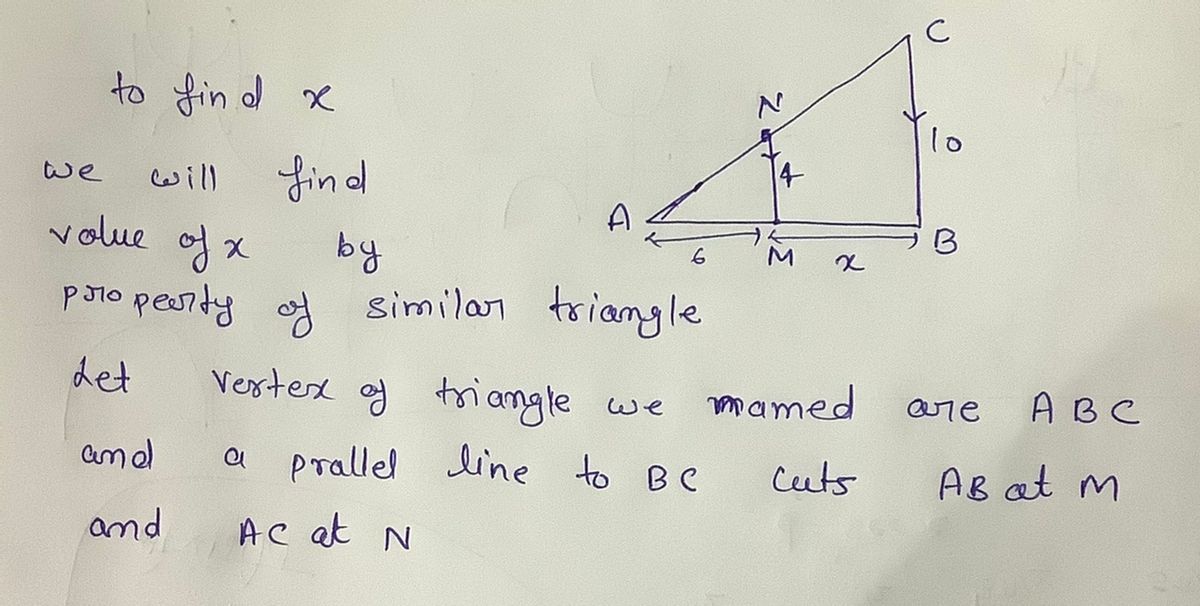 to find x
we will find
value of x by
property of similar triangle
Let vertex of triangle we mamed are A B C
and a prallel line to BC cuts AB at M
and AC at N
C
N
10
4
A
B
6
M
x